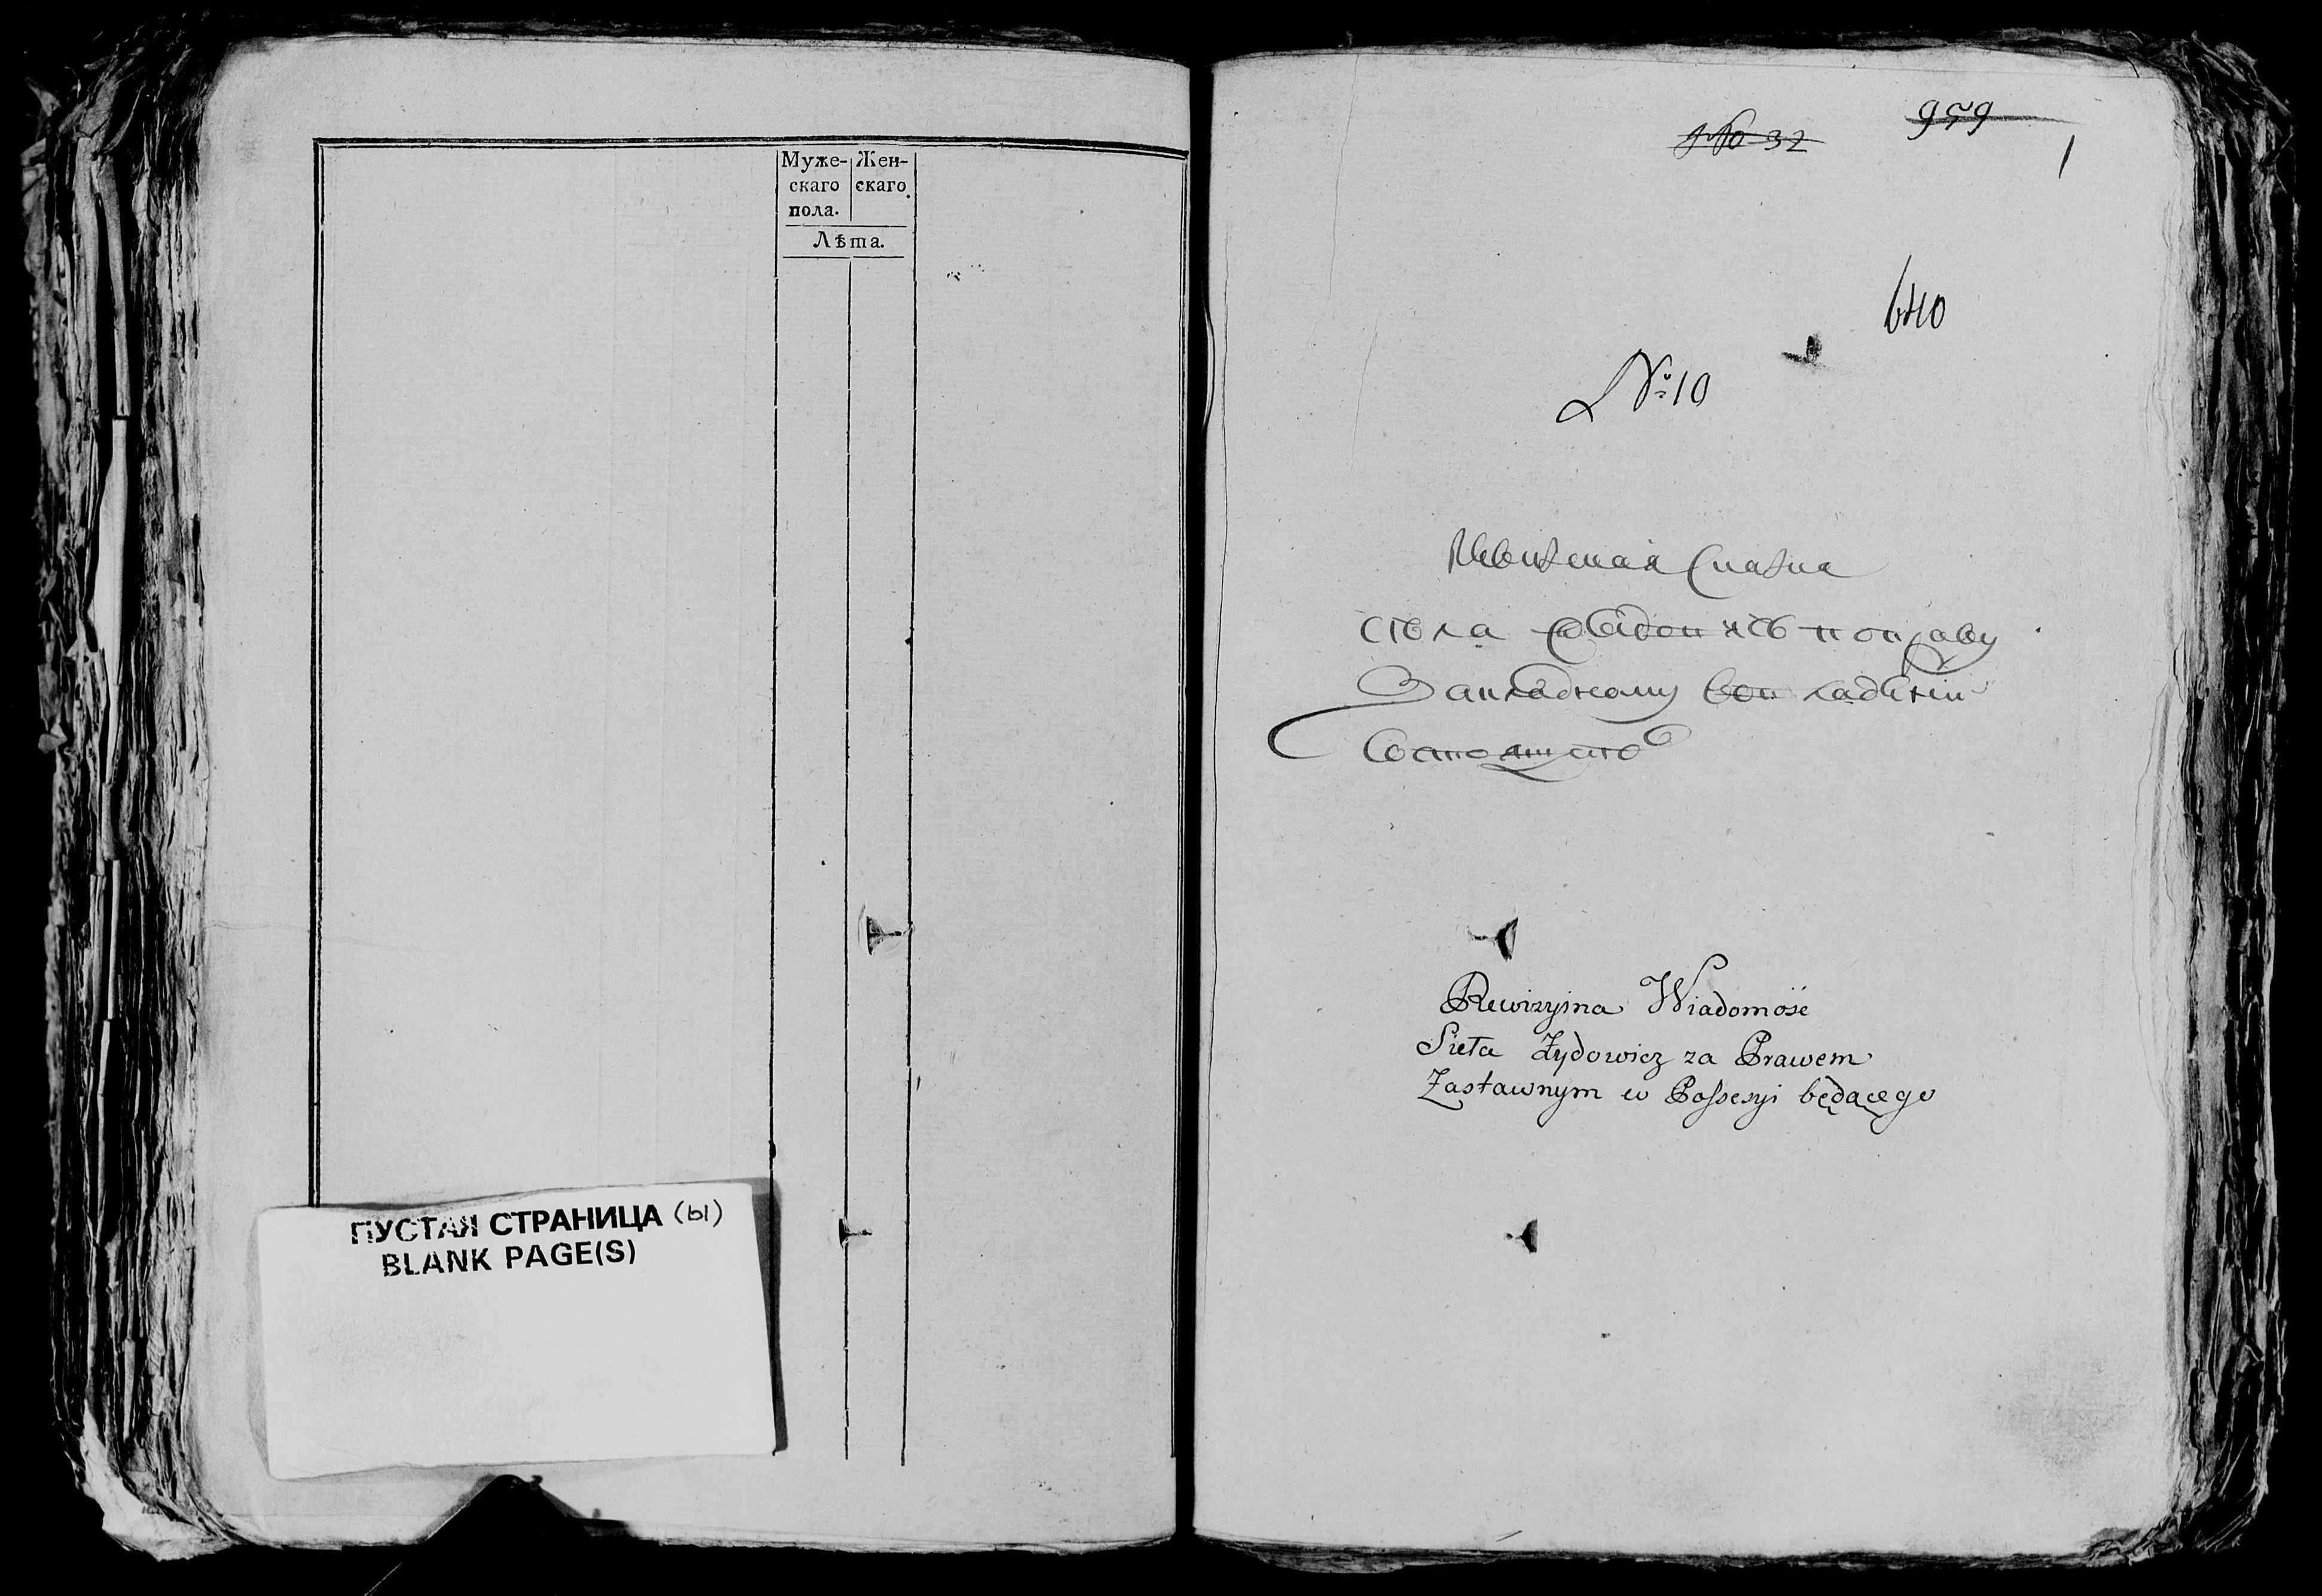 Муже- Жен-
скаго скаго
пола.
Лѣта.
ПУСТАЯ СТРАНИЦА (ы)
BLANK PAGE(S)
№ 32 959
1
640
№ 10
Ревизская Сказка
села по праву
Закладному во владении
Состоящего
Rewizyina Wiadomość
Sieła Żydowicz za Prawem
Zastawnym w Possesyi będącego